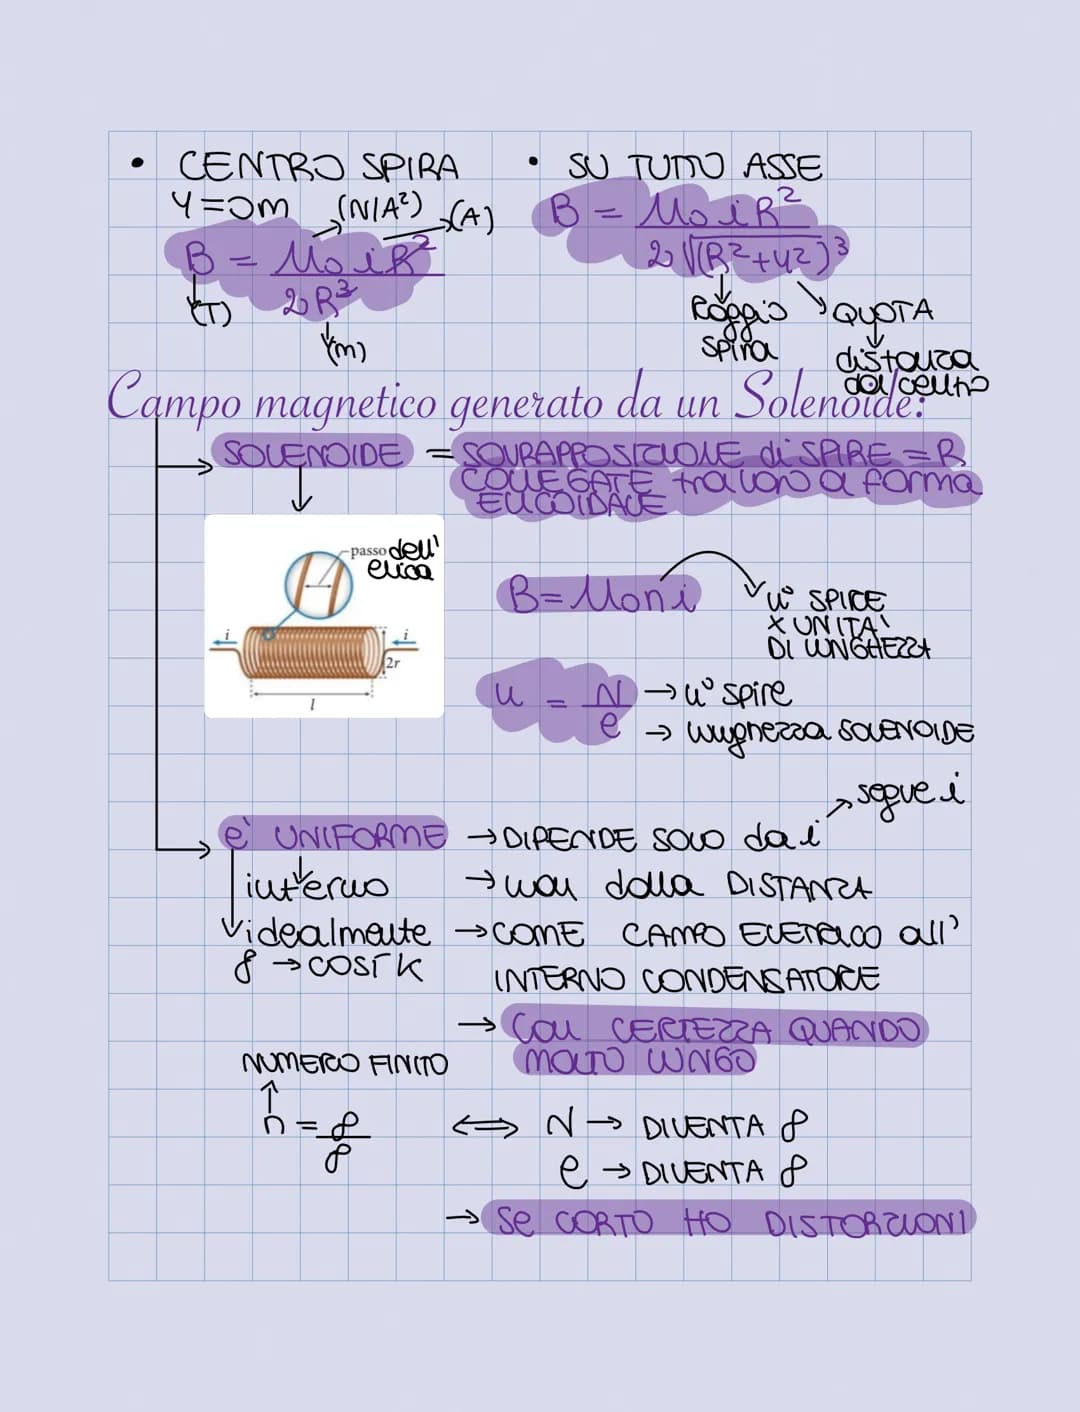 • CENTRO SPIRA
y=0m (N/A²) (A)
B = μ₀iR² / 2R³
(T)
(m)
• SU TUTTO ASSE
B = μ₀iR² / 2√(R²+y²)³
Raggio spira
QUOTA
distanza dal centro
Campo magnetico generato da un Solenoide:
SOLENOIDE = SOVRAPPOSIZIONE di SPIRE = R
COLLEGATE tra loro a forma
ELICOIDALE
passo dell'
elica
i
i
2r
l
B=μ₀ni
n° SPIRE
X UNITA'
DI LUNGHEZZA
n = N → n° spire
l → lunghezza SOLENOIDE
segue i
e' UNIFORME → DIPENDE SOLO da i
interno → non dalla DISTANZA
idealmente → COME CAMPO ELETTRICO all'
∞ → COST K INTERNO CONDENSATORE
→ CON CERTEZZA QUANDO
MOLTO LUNGO
NUMERO FINITO
n = ∞/∞ ⟺ N → DIVENTA ∞
l → DIVENTA ∞
→ Se CORTO HO DISTORZIONI